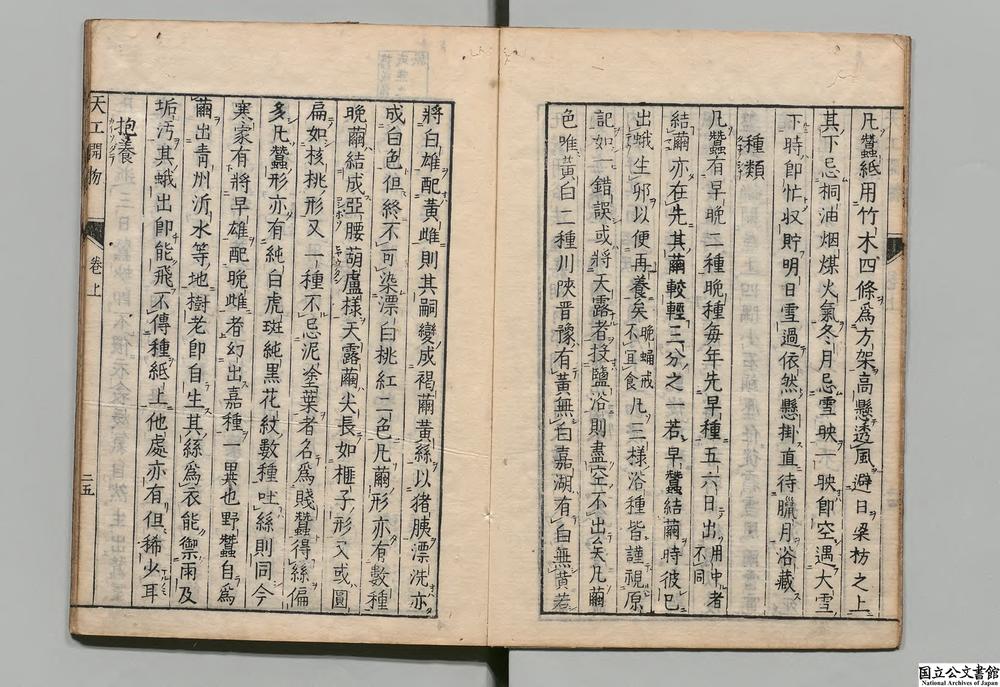 凡蠶紙用竹木四條為方架高懸透風避日梁枋之上
其下忌桐油烟煤火氣冬月忌雪映一映即空遇大雪
下時即忙収貯明日雪過依然懸掛直待臘月浴藏
種類
凡蠶有早晚二種晚種每年先早種五六日出川中者不同
結繭亦在先其繭較輕三分之一若早蠶結繭時彼已
出蛾生卵以便再養矣晚蛹戒不宜食凡三樣浴種皆謹視原
記如一錯誤或將天露者投鹽浴則盡空不出矣凡繭
色唯黃白二種川陝晉豫有黃無白嘉湖有白無黃若
將白雄配黃雌則其嗣變成褐繭黃絲以猪胰漂洗亦
成白色但終不可染漂白桃紅二色凡繭形亦有數種
晚繭結成亞腰葫蘆樣天露繭尖長如榧子形又或圓
扁如核桃形又一種不忌泥塗葉者名為賤蠶得絲偏
多凡蠶形亦有純白虎斑純黑花紋數種吐絲則同今
寒家有將早雄配晚雌者幻出嘉種一異也野蠶自為
繭出青州沂水等地樹老即自生其絲為衣能禦雨及
垢汚其蛾出即能飛不傳種紙上他處亦有但稀少耳
抱養
天工開物
卷上
二五
国立公文書館
National Archives of Japan